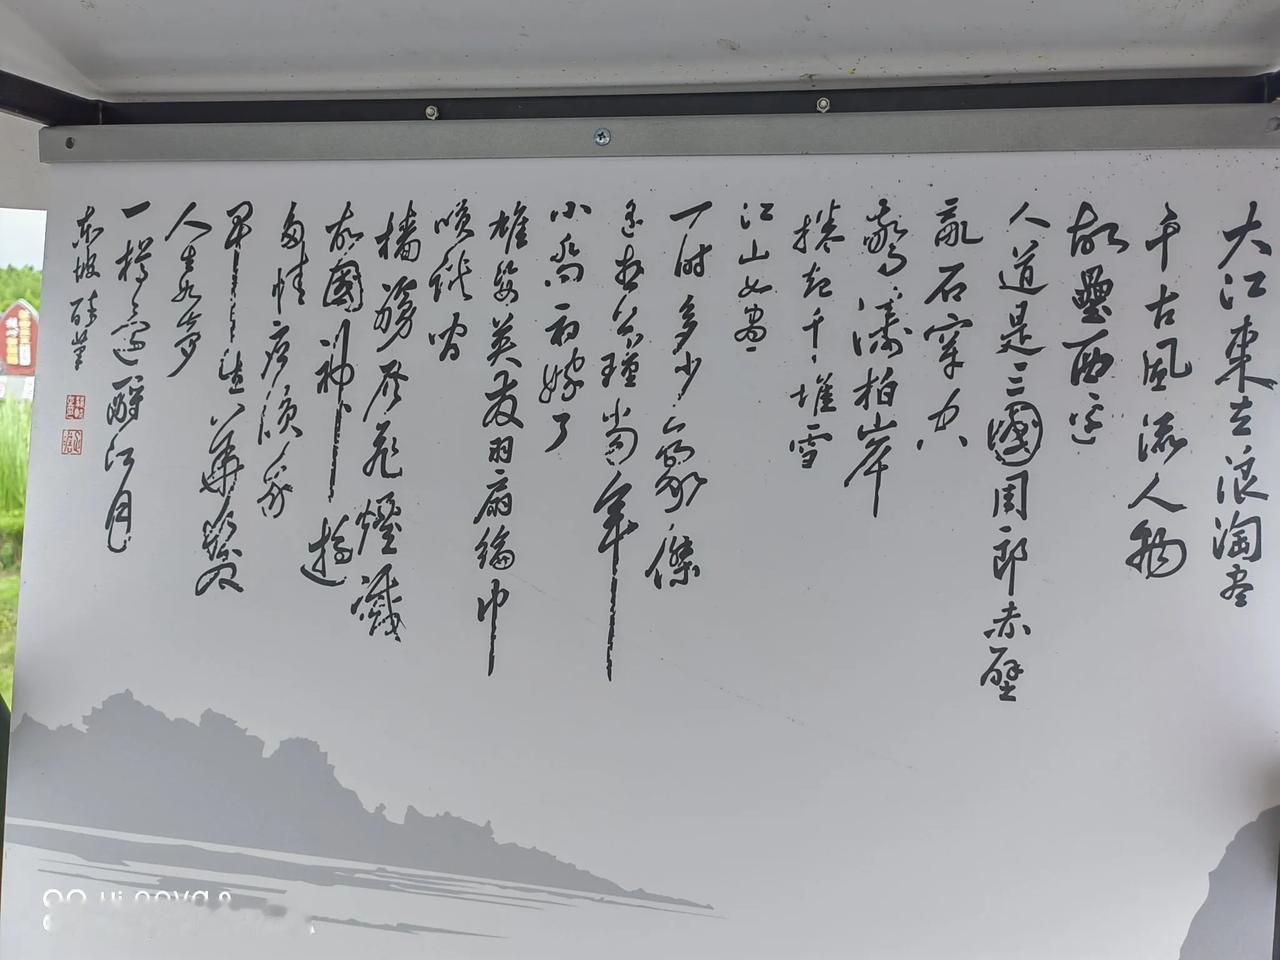 大江東去浪淘尽
千古風流人物
故壘西邊
人道是三國周郎赤壁
亂石穿空
驚濤拍岸
捲起千堆雪
江山如畫
一時多少豪傑
遙想公瑾當年
小喬初嫁了
雄姿英发羽扇綸巾
笑談間
檣虜灰飛煙滅
故國神遊
多情應笑我
早生華髮
人生如夢
一樽還酹江月
東坡醉筆